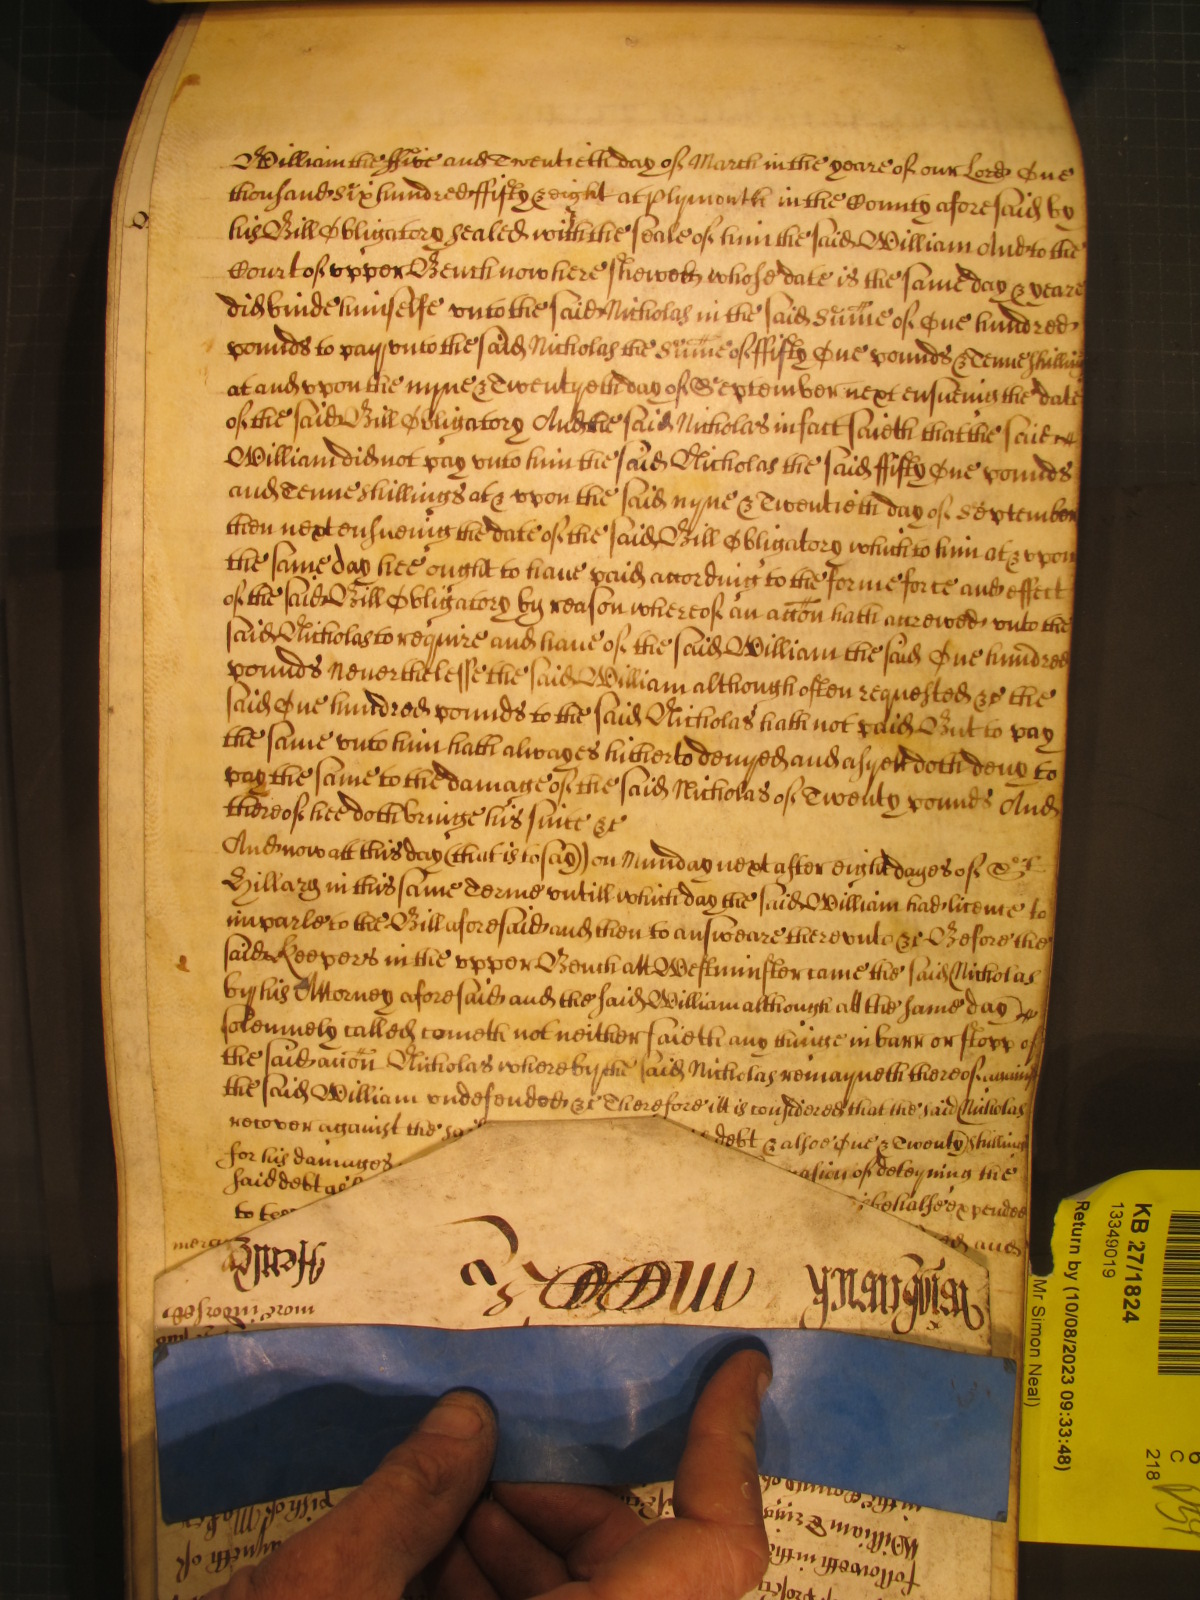 William the ffive and Twentieth day of March in the yeare of our Lord One
thousand six hundred ffifty & eight at Plymouth in the County aforesaid by
his Bill Obligatory sealed with the seale of him the said William And to the
Court of vpper Bench now here sheweth whose date is the same day & yeare
did binde himselfe vnto the said Nicholas in the said Sum̄e of One hundred
pounds to pay vnto the said Nicholas the Sum̄e of ffifty One pounds & Tenne shillings
at and vpon the nyne & Twentyeth day of September next ensueing the date
of the said Bill Obligatory And the said Nicholas in fact saieth that the said
William did not pay vnto him the said Nicholas the said ffifty One pounds
and Tenne shillings at & vpon the said nyne & Twentieth day of September
then next ensueing the date of the said Bill Obligatory which to him at & vpon
the same day hee ought to haue paid according to the forme force and effect
of the said Bill Obligatory by reason whereof an acc̄on hath accrewed vnto the
said Nicholas to require and haue of the said William the said One hundred
pounds Neuerthelesse the said William although often requested &c the
said One hundred pounds to the said Nicholas hath not paid But to pay
the same vnto him hath alwayes hitherto denyed and as yett doth deny to
pay the same to the damage of the said Nicholas of Twenty pounds And
thereof hee doth bringe his suite &c
And now att this day (that is to say) on Munday next after eight dayes of St
Hillary in this same Terme vntill which day the said William had licence to
imparle to the Bill aforesaid and then to answeare therevnto &c Before the
said Keepers in the vpper Bench att Westminster came the said Nicholas
by his Attorney aforesaid and the said William although att the same day
solemnely called cometh not neither saieth any thinge in barr or stopp of
the said acc̄on Nicholas whereby the said Nicholas remayneth thereof against
the said William vndefended &c Therefore itt is considered that the said Nicholas
recover against the sa debt & alsoe One & Twenty shillings
for his damages deteyning the
said debt as behalfe expended
to and
mercy
Hertle Moore Trigbutch
more indorsed
KB 27/1824
13349019
Return by (10/08/2023 09:33:48)
Mr Simon Neal)
6
C
218
William
followeth